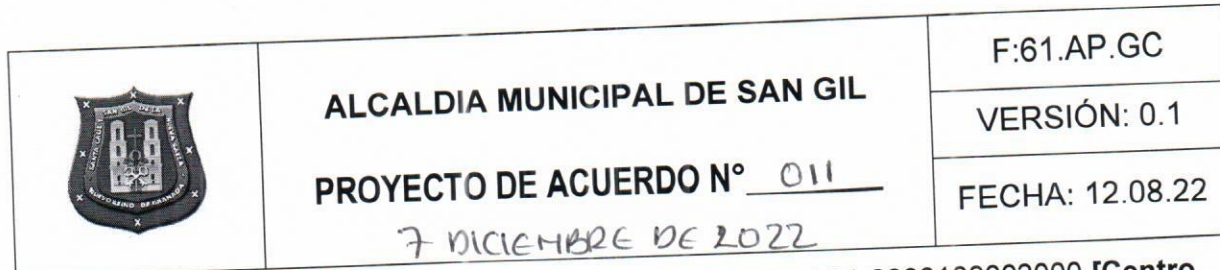 ALCALDIA MUNICIPAL DE SAN GIL
PROYECTO DE ACUERDO N° 011
7 DICIEMBRE DE 2022
F:61.AP.GC
VERSIÓN: 0.1
FECHA: 12.08.22
[Contro